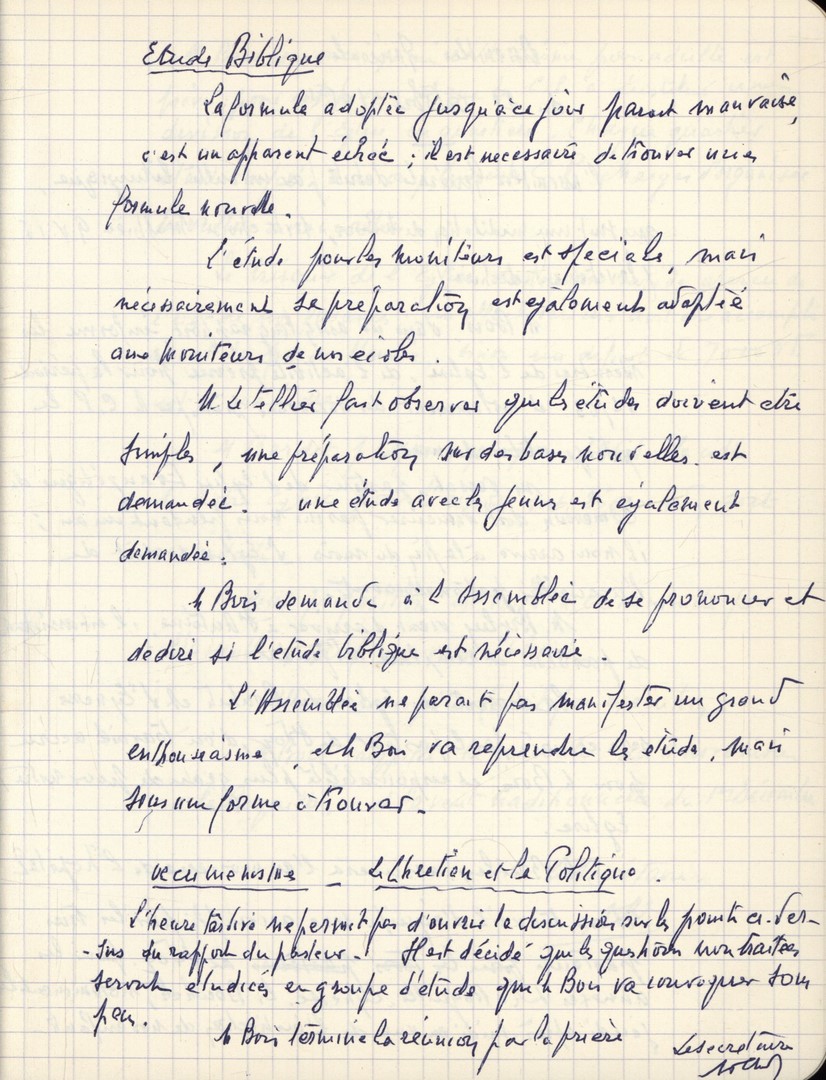 Etude Biblique
La formule adoptée jusqu'à ce jour parait mauvaise,
c'est un apparent échec ; il est necessaire de trouver une
formule nouvelle.
L'étude pour les moniteurs est speciale, mais
nécessairement sa préparation est également adaptée
aux moniteurs de nos écoles.
M. Letellier fait observer que les études doivent etre
simples, une préparation sur des bases nouvelles est
demandée. une étude avec les jeunes est également
demandée.
M Bois demande à l'Assemblée de se prononcer et
de dire si l'etude biblique est nécessaire.
L'Assemblée ne parait pas manifester un grand
enthousiasme, et M Bois va reprendre les etude, mais
sous une forme à trouver.
œcumenisme - Le Chretien et la Politique.
L'heure tardive ne permet pas d'ouvrir la discussion sur les points ci-des-
-sus du rapport du pasteur. - Il est décidé que les questions non traitées
seront étudiées en groupe d'étude que M Bois va convoquer sous
peu.
M Bois termine la réunion par la prière
Le secretaire